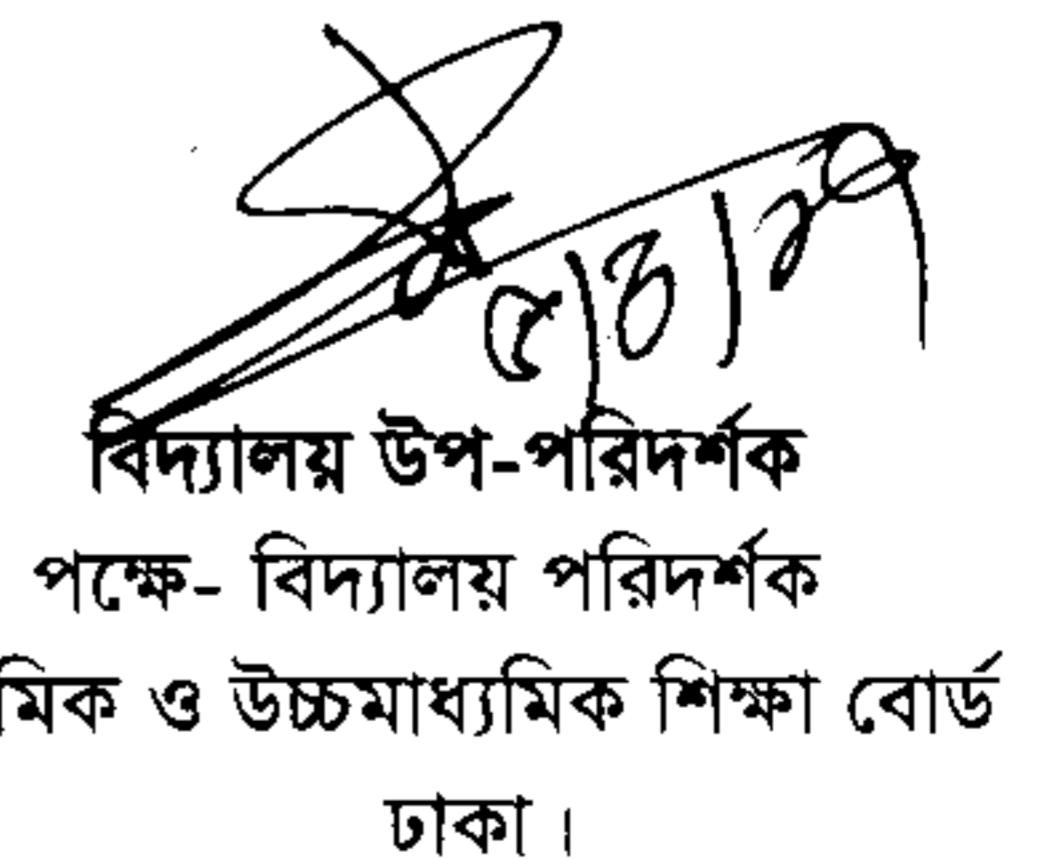 বিদ্যালয় উপ-পরিদর্শক
পক্ষে- বিদ্যালয় পরিদর্শক
মিক ও উচ্চমাধ্যমিক শিক্ষা বোর্ড
ঢাকা।